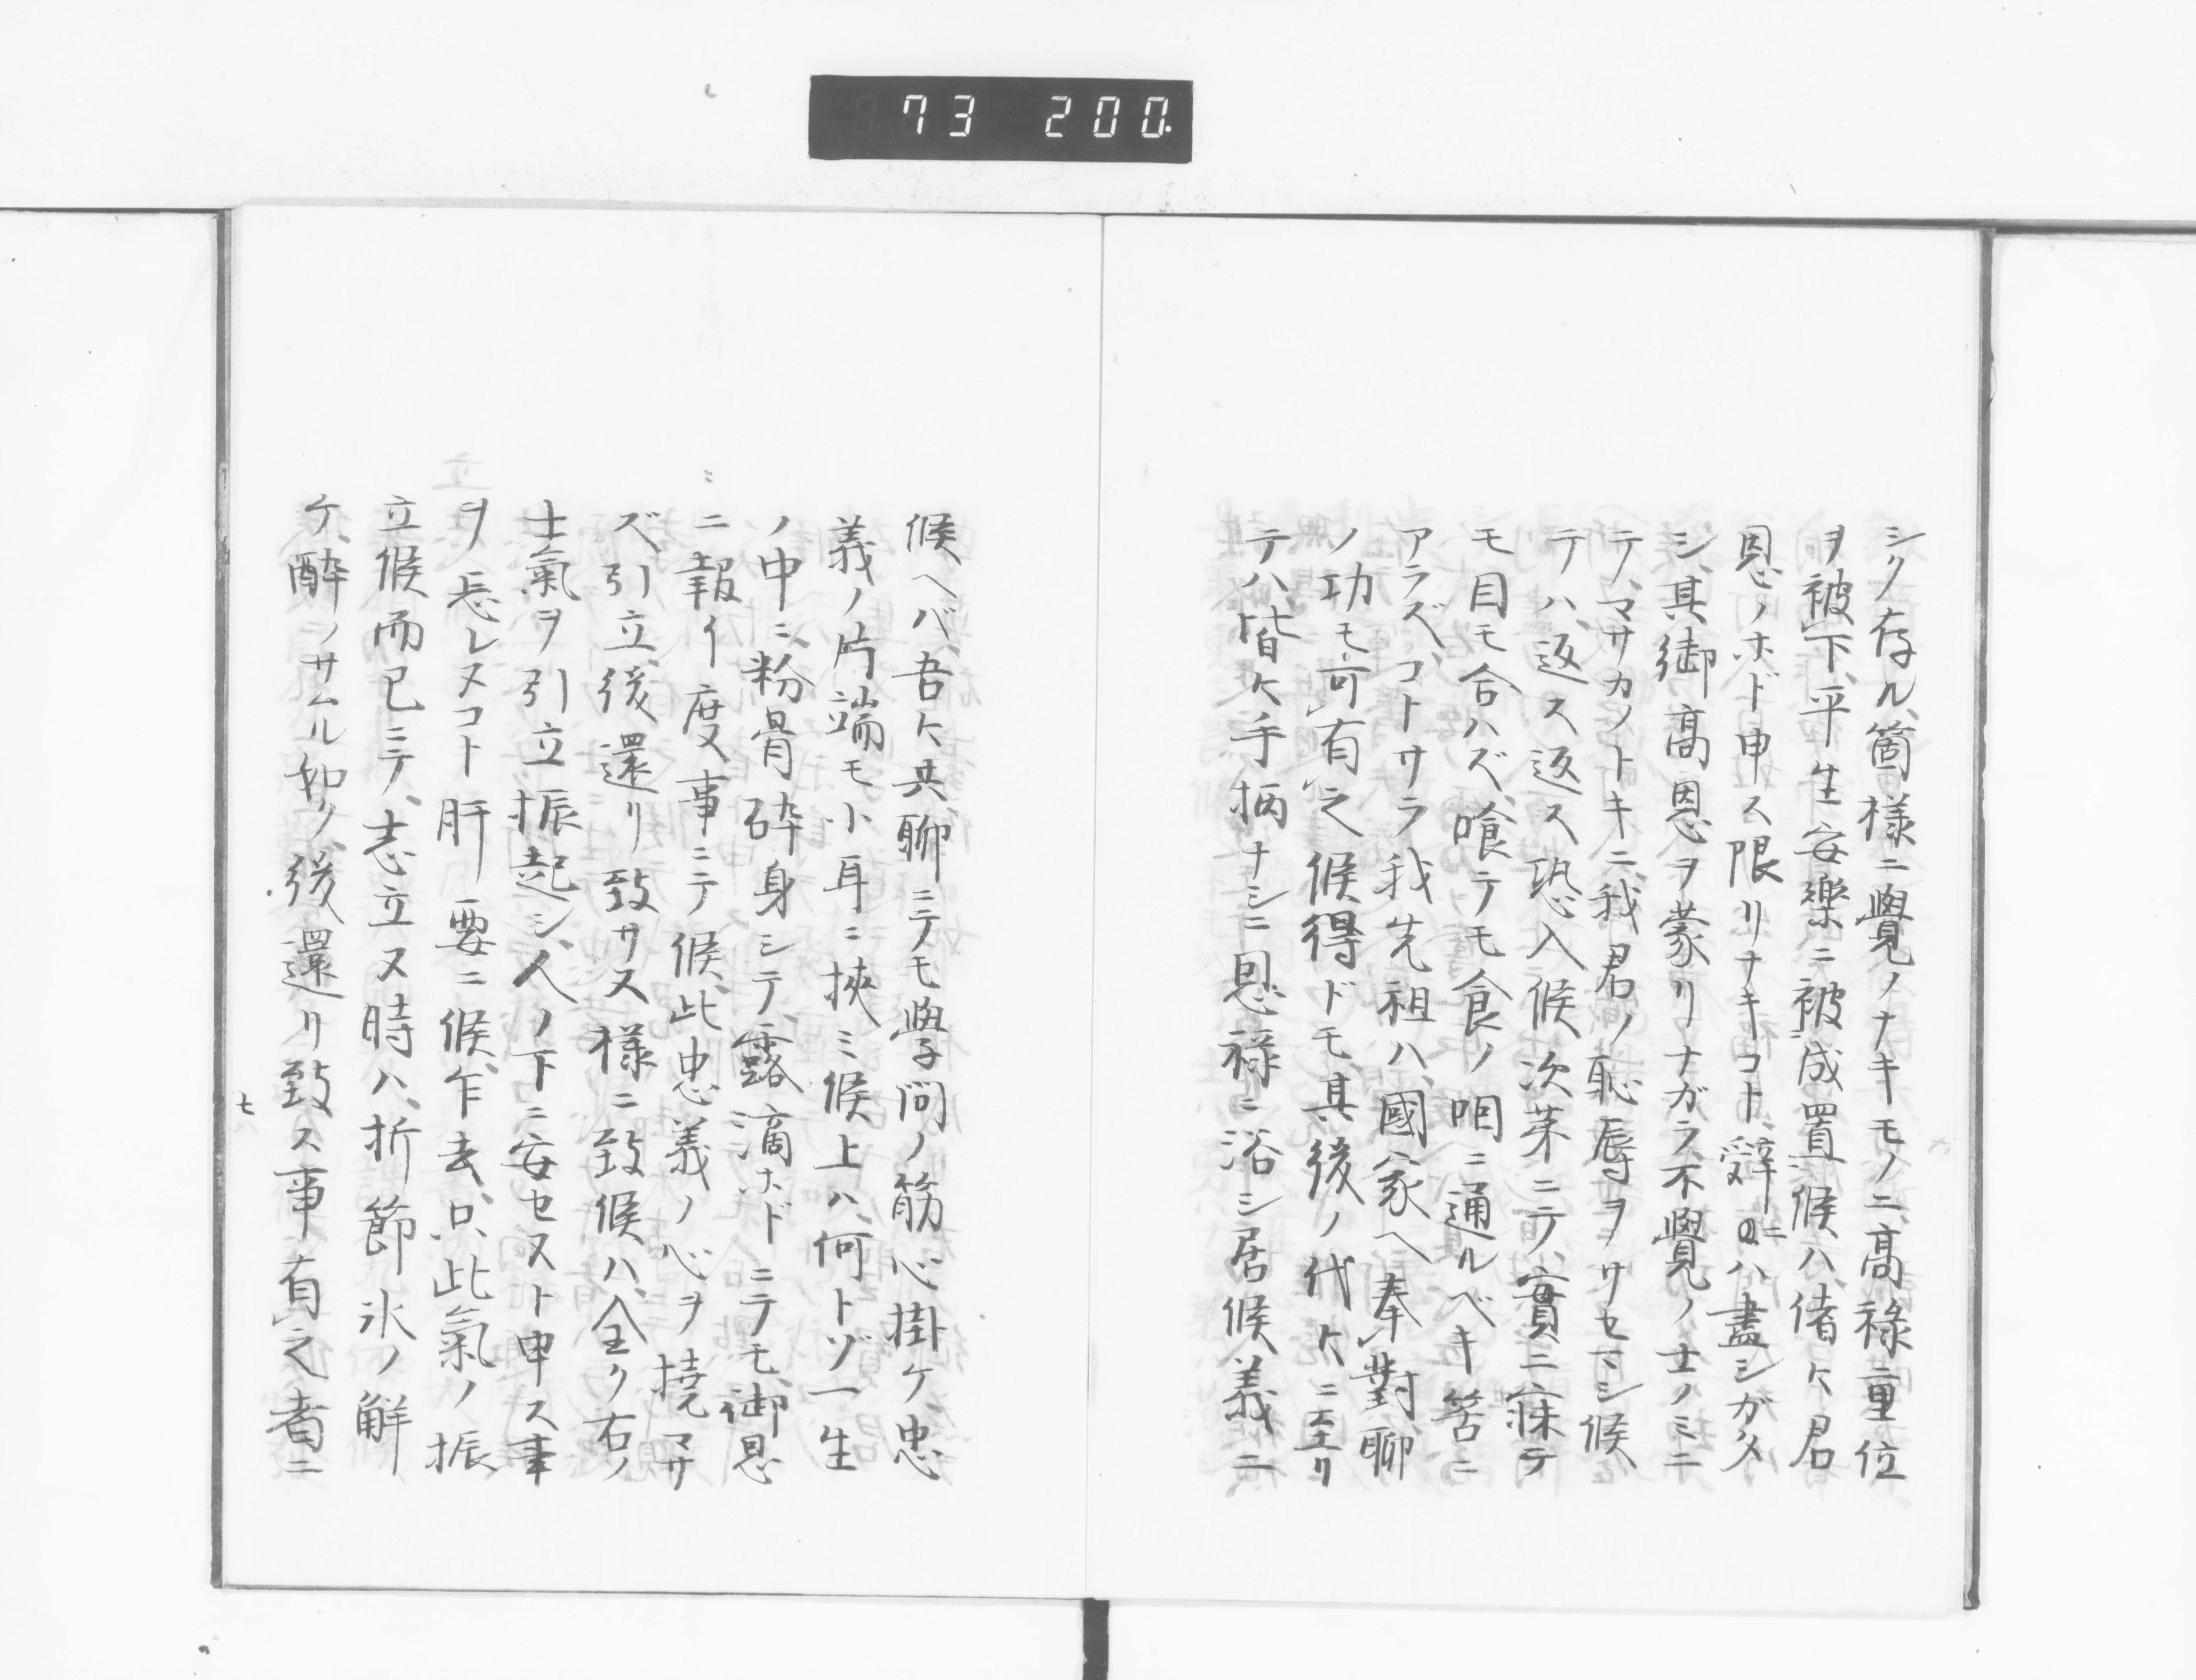 73 200.
シク存ル、箇様ニ覺ノナキモノニ、高祿重位
ヲ被下、平生安樂ニ被成置候ハ、偖々君
恩ノホド申ス限リナキコト、辭ニハ盡シガタ
シ、其御高恩ヲ蒙リナガラ、不覺ノ士ノミニ
テ、マサカノトキニ、我君ノ恥辱ヲサセマシ候
テハ、返ス返ス恐入候次第ニテ、實ニ寐テ
モ目モ合ハズ、喰テモ食ノ咽ニ通ルベキ筈ニ
アラズ、コトサラ我先祖ハ、國家ヘ奉對聊
ノ功モ可有之候得ドモ、其後ノ代々ニ至リ
テハ、皆々手柄ナシニ恩祿ニ浴シ居候義ニ
候ヘバ、吾々共聊ニテモ學問ノ筋心掛ケ、忠
義ノ片端モ小耳ニ挾ミ候上ハ、何トゾ一生
ノ中ニ、粉骨砕身シテ、露滴ホドニテモ、御恩
ニ報イ度事ニテ候、此忠義ノ心ヲ撓マサ
ズ、引立、後還リ致サヌ様ニ致候ハ、全ク右ノ
士氣ヲ引立振起シ、人ノ下ニ安セヌト申ス事
ヲ忘レヌコト肝要ニ候、乍去、只此氣ノ振
立候而已ニテ、志立ヌ時ハ、折節氷ノ解
ケ、醉ノサムル如ク、後還リ致ス事有之者ニ
七